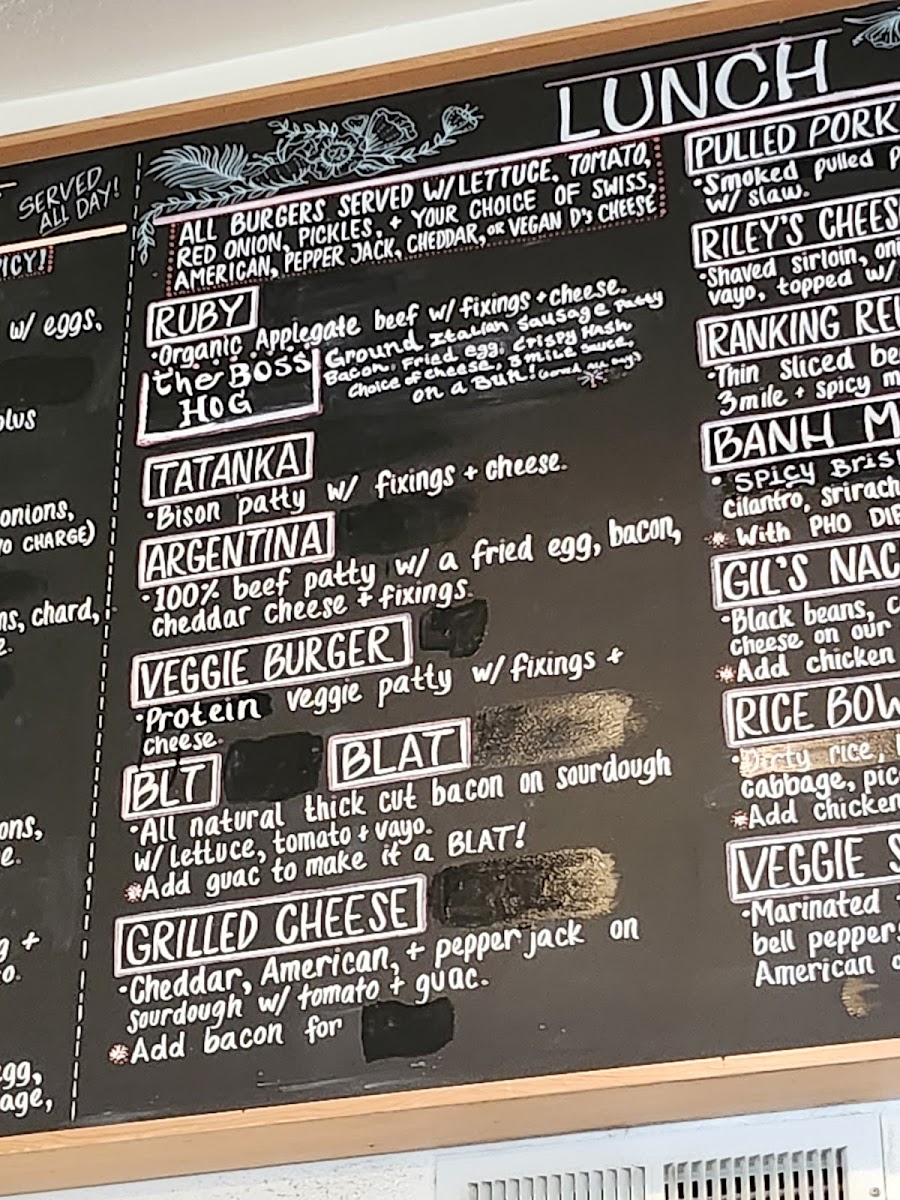 SERVED
ALL DAY!
ICY!
w/ eggs,
plus
onions,
/o CHARGE)
ns, chard,
e.
ons,
e.
g +
o.
egg,
age,
LUNCH
ALL BURGERS SERVED W/LETTUCE, TOMATO,
RED ONION, PICKLES, + YOUR CHOICE OF SWISS,
AMERICAN, PEPPER JACK, CHEDDAR, OR VEGAN D's CHEESE
RUBY
•Organic Applegate beef w/ fixings + cheese.
the BOSS
HOG
Ground Italian Sausage Patty
Bacon, Fried egg, Crispy Hash
Choice of cheese, 3 mile sauce,
on a Bun!
TATANKA
•Bison patty w/ fixings + cheese.
ARGENTINA
•100% beef patty w/ a fried egg, bacon,
cheddar cheese + fixings.
VEGGIE BURGER
•Protein veggie patty w/ fixings +
cheese.
BLT BLAT
•All natural thick cut bacon on sourdough
w/ lettuce, tomato + vayo.
*Add guac to make it a BLAT!
GRILLED CHEESE
•Cheddar, American, + pepper jack on
sourdough w/ tomato + guac.
*Add bacon for
PULLED PORK
•Smoked pulled p
w/ slaw.
RILEY'S CHEES
•Shaved sirloin, oni
vayo, topped w/
RANKING REU
•Thin sliced be
3mile + spicy m
BANH M
• SPICY BRIS
cilantro, srirach
* With PHO DIP
GIL'S NAC
•Black beans, c
cheese on our
*Add chicken
RICE BOW
•Dirty rice,
cabbage, pic
*Add chicken
VEGGIE S
•Marinated
bell pepper
American o